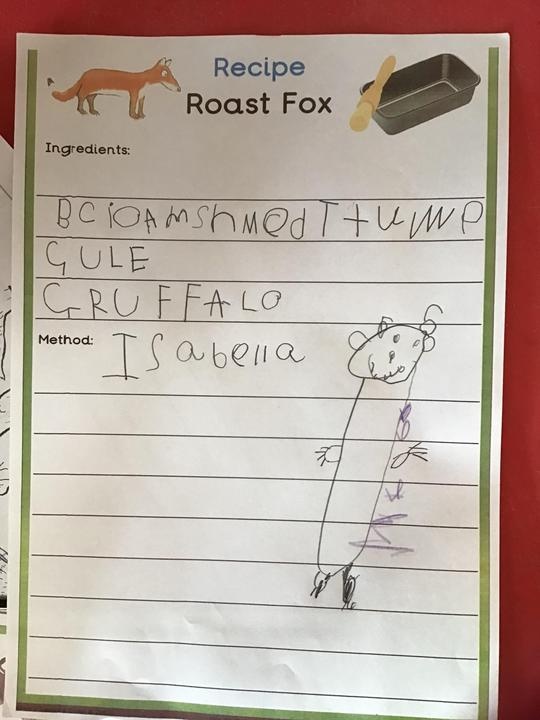 Recipe
Roast Fox
Ingredients:
BCIOAMShMedTtUMP
GULE
GRUFFALO
Method: Isabella